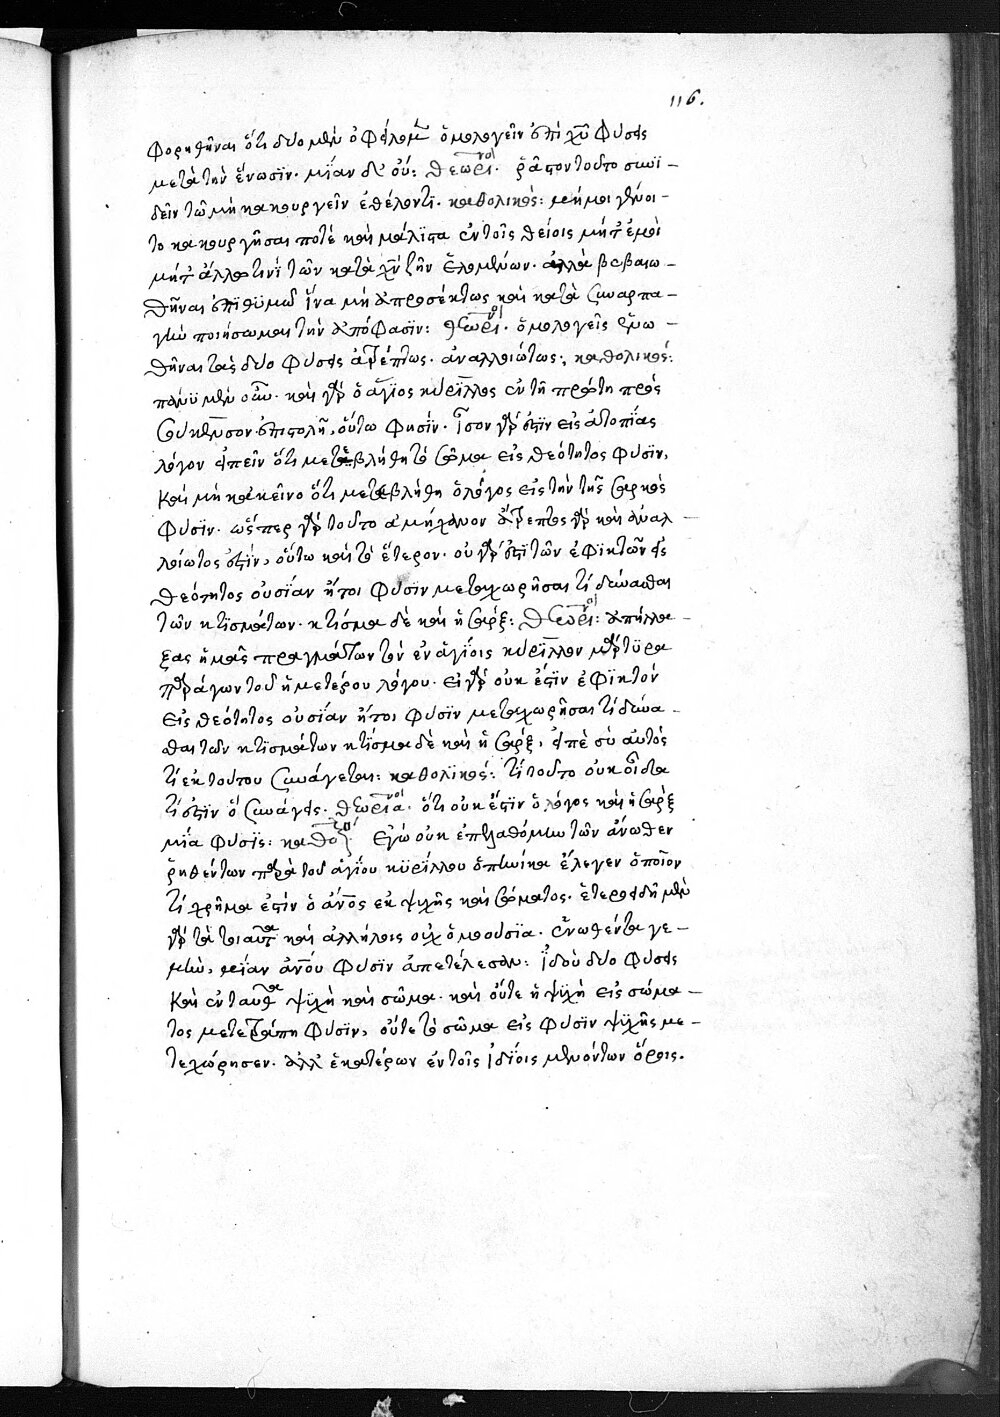 116.
φορηθῆναι ὅτι δύο μὲν ὀφείλομ(εν) ὁμολογεῖν ἐπὶ χ̅υ̅ φύσεις
μετὰ τὴν ἕνωσϊν· μΐαν δὲ οὔ: θεωρι· ῥᾶστον τοῦτο συνϊ –
δεῖν τῶ μὴ κακουργεῖν ἐθέλοντι· καθολικὸς: μή μοι γένοι –
το κακουργῆσαι ποτὲ καὶ μάλϊστα ἐν τοῖς θείοις μήτ' ἐμοὶ
μήτ' ἄλλω τινὶ τῶν κατὰ χ̅ν̅ ζῆν ἑλομένων· ἀλλὰ βεβαιω –
θῆναι ἐπιθϋμῶ ἵνα μὴ ἀπροσέκτως καὶ κατὰ συναρπα –
γὴν ποιήσωμαι τὴν ἀπόφασϊν: θεωρι· ὁμολογεῖς ἑνω –
θῆναι τὰς δύο φύσεις ἀτρέπτως· ἀναλλοιώτως; καθολικός:
πάνϋ μὲν οὖν· καὶ γὰρ ὁ ἅγϊος κύριλλος ἐν τῆ πρώτη πρὸς
σούκενσον ἐπιστολῆ, οὕτω φησίν· ἴσον γάρ ἐστϊν εἰς ἀτοπΐας
λόγον εἰπεῖν ὅτι μετεβλήθη τὸ σῶμα εἰς θεότητος φύσϊν,
καὶ μὴν κἀκεῖνο ὅτι μετεβλήθη ὁ λόγος εἰς τὴν τῆς σαρκὸς
φύσϊν· ὥσπερ γὰρ τοῦτο ἀμήχανον ἄτρεπτος γὰρ καὶ ἀναλ –
λοίωτος ἐστϊν, οὕτω καὶ τὸ ἕτερον· οὐ γάρ ἐστϊ τῶν ἐφϊκτῶν εἰς
θεότητος οὐσίαν ἤτοι φύσϊν μεταχωρῆσαι τὶ δύνασθαι
τῶν κτϊσμάτων· κτίσμα δὲ καὶ ἡ σάρξ: θεωρι: ἀπήλλα –
ξας ἡμᾶς πραγμάτων τὸν ἐν ἁγΐοις κύριλλον μάρτϋρα
παράγων τοῦ ἡμετέρου λόγου· εἰ γὰρ οὐκ ἔστϊν ἐφϊκτὸν
εἰς θεότητος οὐσίαν ἤτοι φύσϊν μεταχωρῆσαι τὶ δύνα –
σθαι τῶν κτϊσμάτων κτΐσμα δὲ καὶ ἡ σάρξ, εἰπὲ σὺ αὐτὸς
τί ἐκ τούτου συνάγεται: καθολϊκός: τί τοῦτο οὐκ οἶδα
τί ἐστϊν ὃ συνάγεις· θεωρια· ὅτι οὐκ ἔστϊν ὁ λόγος καὶ ἡ σὰρξ
μΐα φύσϊς: καθο Ἐγὼ οὐκ ἐπελαθόμην τῶν ἄνωθεν
ῥηθέντων παρὰ τοῦ ἁγΐου κϋρΐλλου ὁπηνίκα ἔλεγεν ὁποῖον
τί χρῆμα ἐστὶν ὁ ἄν̅ο̅ς ἐκ ψυχῆς καὶ σώματος· ἑτεροειδῆ μὲν
γὰρ τὰ τοιαῦτα καὶ ἀλλήλοις οὐχ ὁμοούσϊα· ἑνωθέντα γε –
μὴν, μίαν ἀν̅ο̅ύ φύσϊν ἀπετέλεσαν: ἰδοὺ δύο φύσεις
καὶ ἐνταῦθα ψϋχὴ καὶ σῶμα· καὶ οὔτε ἡ ψϋχὴ εἰς σώμα –
τος μετετράπη φύσϊν, οὔτε τὸ σῶμα εἰς φύσϊν ψϋχῆς με –
τεχώρησεν· ἀλλ' ἑκατέρων ἐν τοῖς ἰδΐοις μενόντων ὅροις.